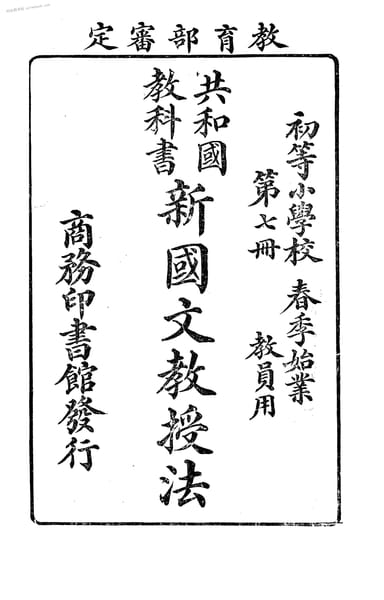 教育部審定
初等小學校 春季始業
第七冊 教員用
共和國
教科書
新國文教授法
商務印書館發行